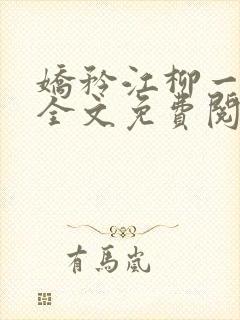 嬌矜江柳一
全文免費閱
有馬嵐